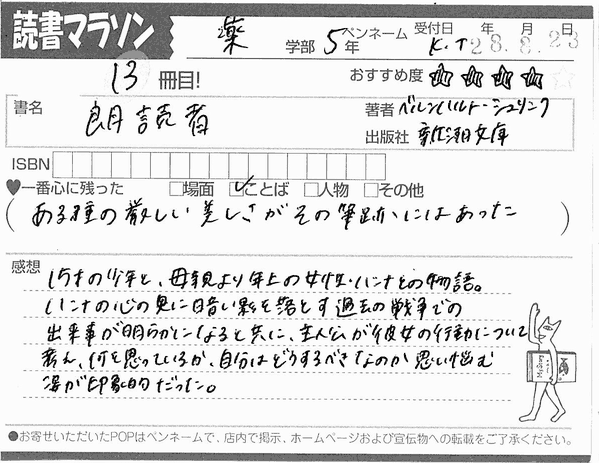 読書マラソン
薬 学部 5年 ペンネーム K.T 受付日 28年 8月 23日
13 冊目! おすすめ度 ☆☆☆☆☆
書名 朗読者 著者 ベルンハルト・シュリンク
出版社 新潮文庫
ISBN
♥一番心に残った □場面 ☑ことば □人物 □その他
(ある種の厳しい美しさがその筆跡にはあった)
感想
15才の少年と、母親より年上の女性・ハンナとの物語。
ハンナの心の奥に暗い影を落とす過去の戦争での
出来事が明らかになると共に、主人公が彼女の行動について
考え、何を思っているか、自分はどうするべきなのか思い悩む
姿が印象的だった。
●お寄せいただいたPOPはペンネームで、店内で掲示、ホームページおよび宣伝物への転載をご了承ください。